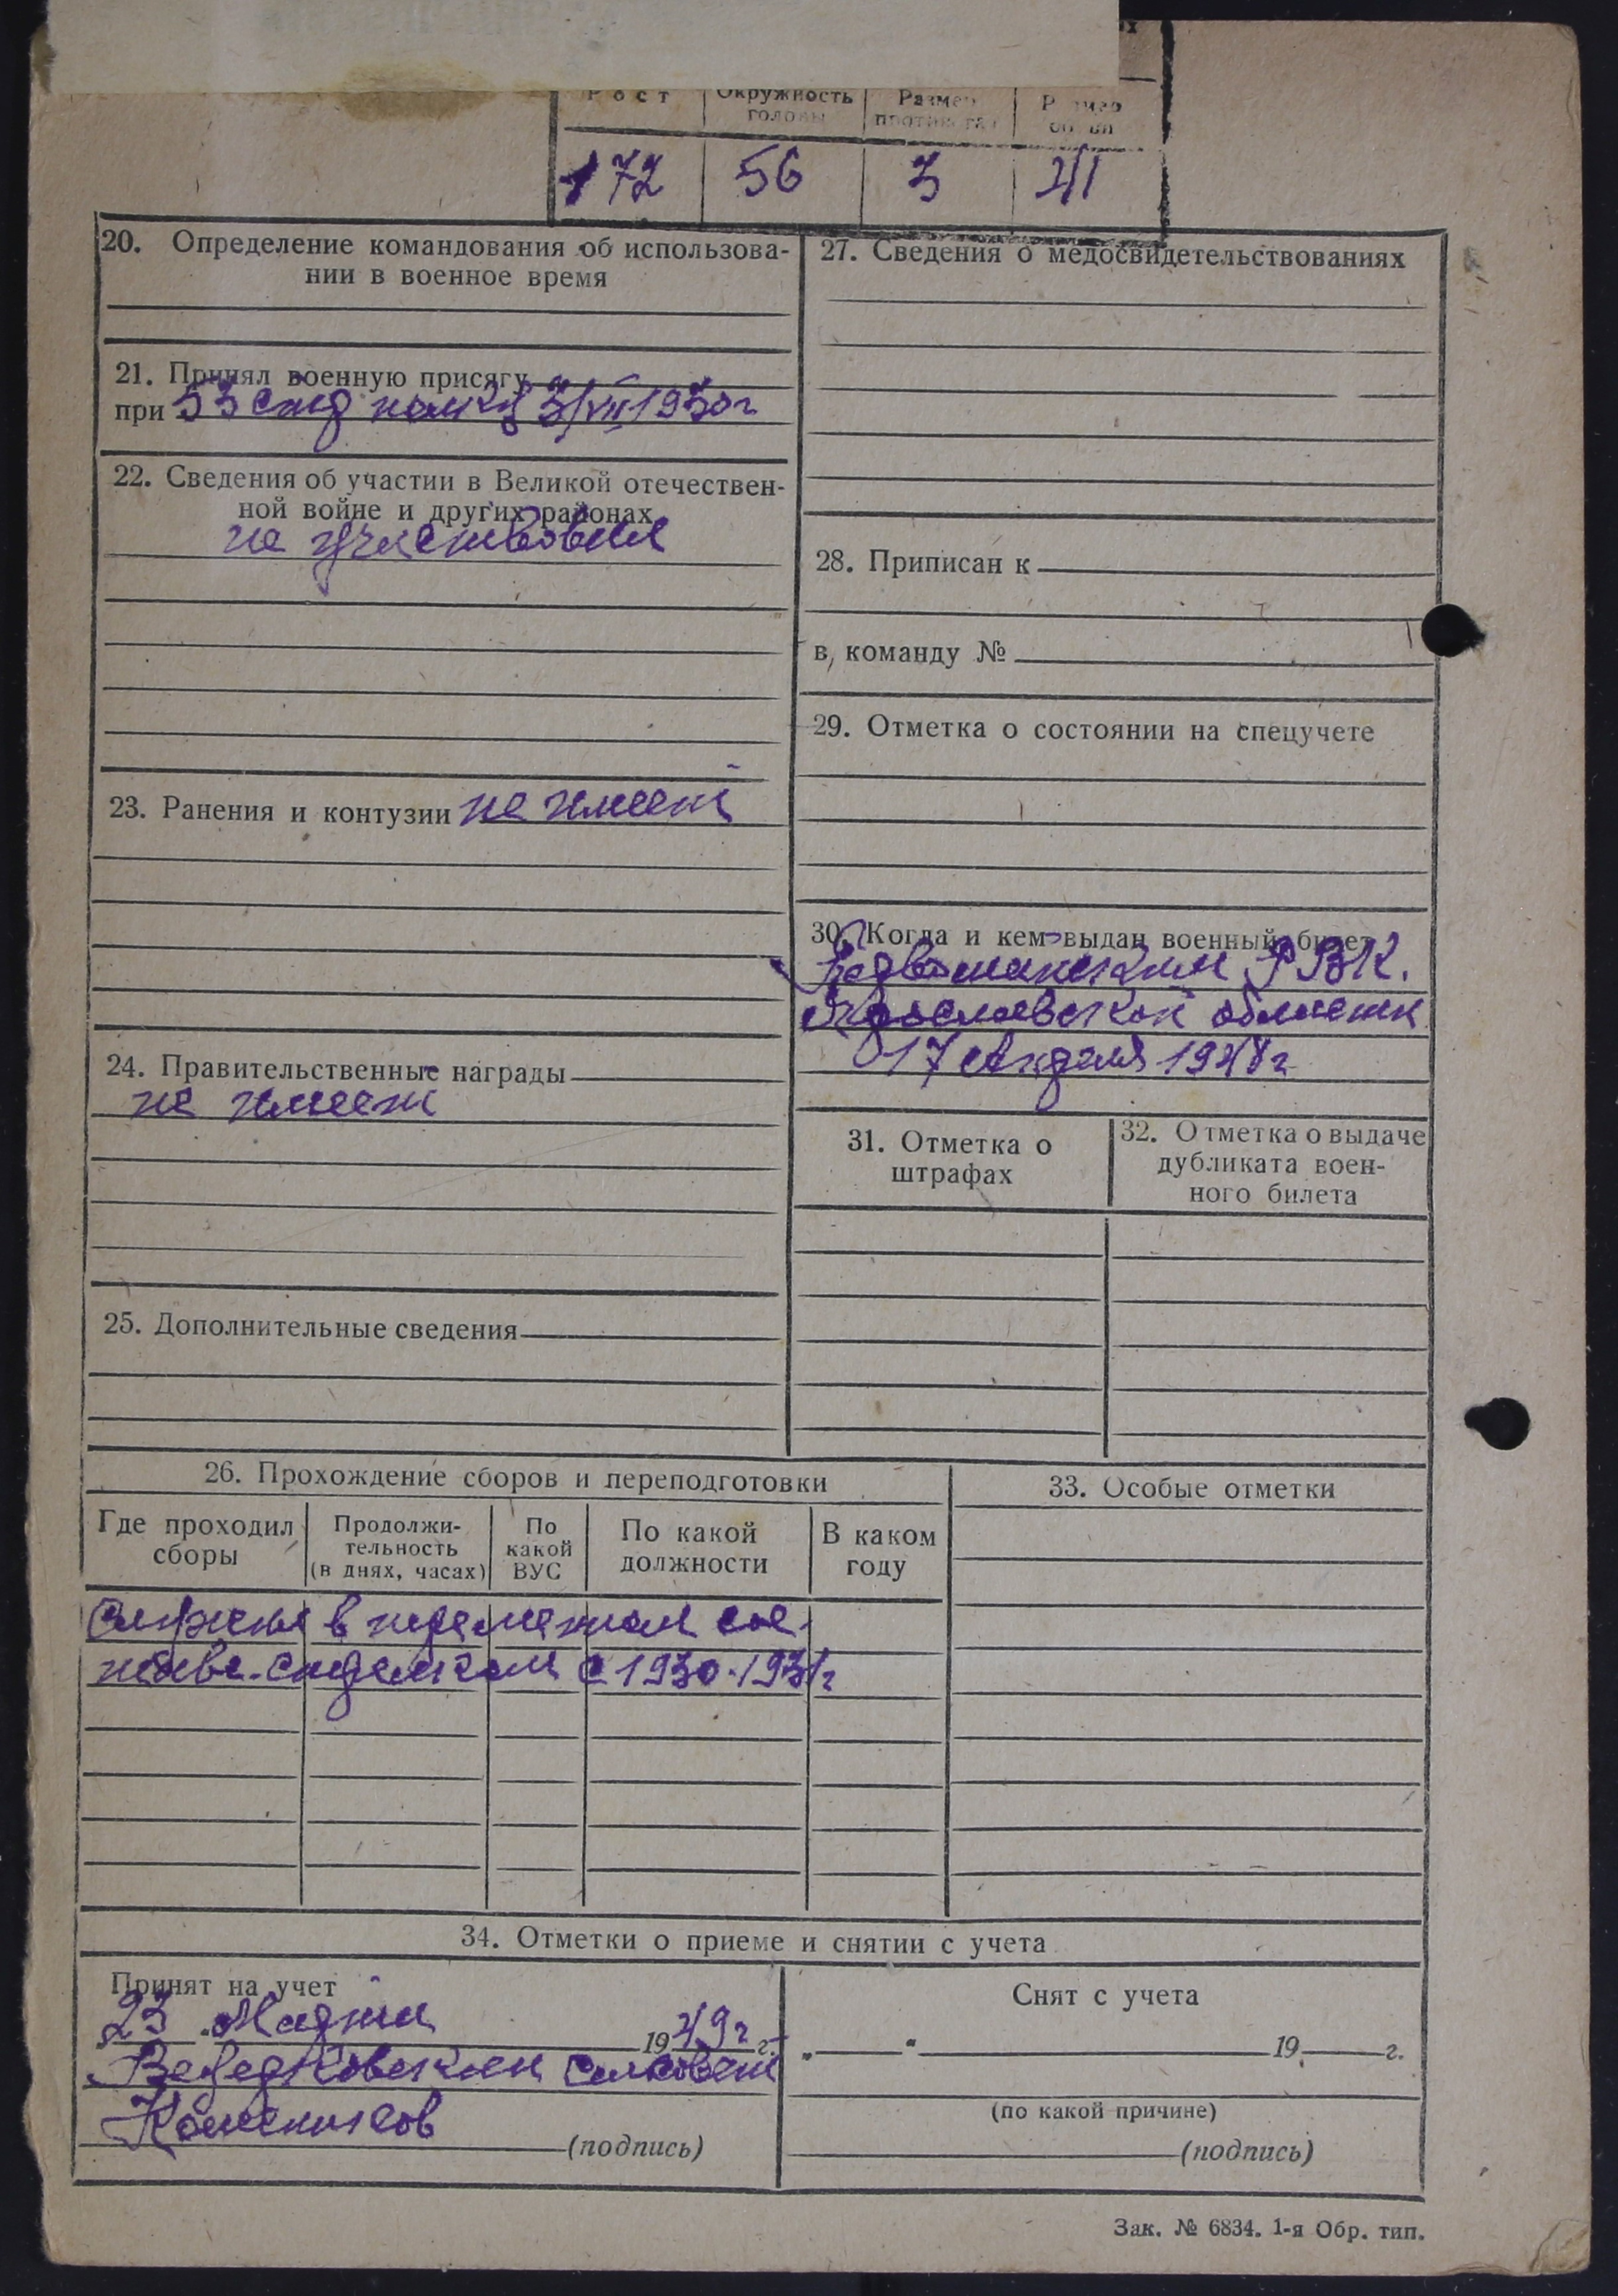 Рост | Окружность головы | Размер противогаза | Размер обуви
172 | 56 | 3 | 41
20. Определение командования об использова-
нии в военное время
21. Принял военную присягу
при 53 стр полку 3/VII 1930 г
22. Сведения об участии в Великой отечествен-
ной войне и других районах
не участвовал
23. Ранения и контузии не имеет
24. Правительственные награды
не имеет
25. Дополнительные сведения
27. Сведения о медосвидетельствованиях
28. Приписан к
в команду №
29. Отметка о состоянии на спецучете
30. Когда и кем выдан военный билет
РВК.
Ярославской области
17 Апреля 1948 г
31. Отметка о
штрафах
32. Отметка о выдаче
дубликата воен-
ного билета
26. Прохождение сборов и переподготовки
Где проходил сборы | Продолжи-тельность (в днях, часах) | По какой ВУС | По какой должности | В каком году
Служил в переменном сос-
таве стрелком с 1930-1931 г
33. Особые отметки
34. Отметки о приеме и снятии с учета
Принят на учет
„23" Марта 1949 г г.
сельсовет
(подпись)
Снят с учета
„ " 19 г.
(по какой причине)
(подпись)
Зак. № 6834. 1-я Обр. тип.